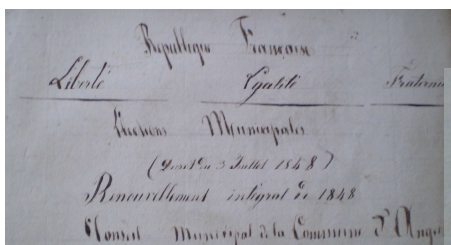 République Française
Liberté Egalité Fraterni
Elections Municipales
(Décret du 3 Juillet 1848)
Renouvellement intégral de 1848
Conseil Municipal de la Commune d'Ange